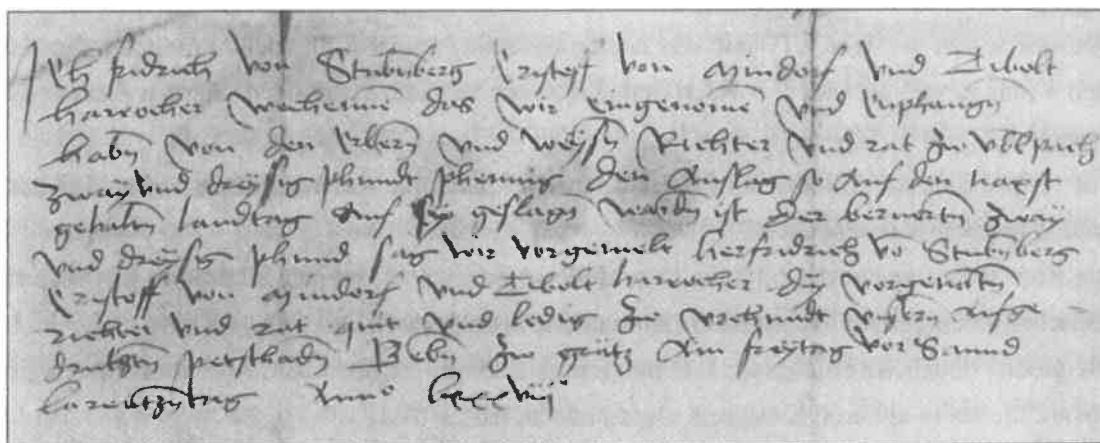 Ich fridrich von Stubnberg Cristoff von Mindorf und Tibolt
harracher bechenne das wir eingenome und Emphangn
habn von den Erbern und weysn Richter und rat zw
zway und dreyssig phundt phennig den Anslag so Auf den naxst
gehaltn landtag Auf sy geslagn wardn ist der beruertn zway
und dreysig phund sag wir vorgemelt her fridrich vo Stubnberg
Cristoff von Mindorf und Tibolt harracher dy vorgenantn
richter und rat quit und ledig zw urchundt unsern Aufge
druktn petschadn Gebn zw grätz Am freytag vor Sannd
larentzntag Anno lxxxviiº